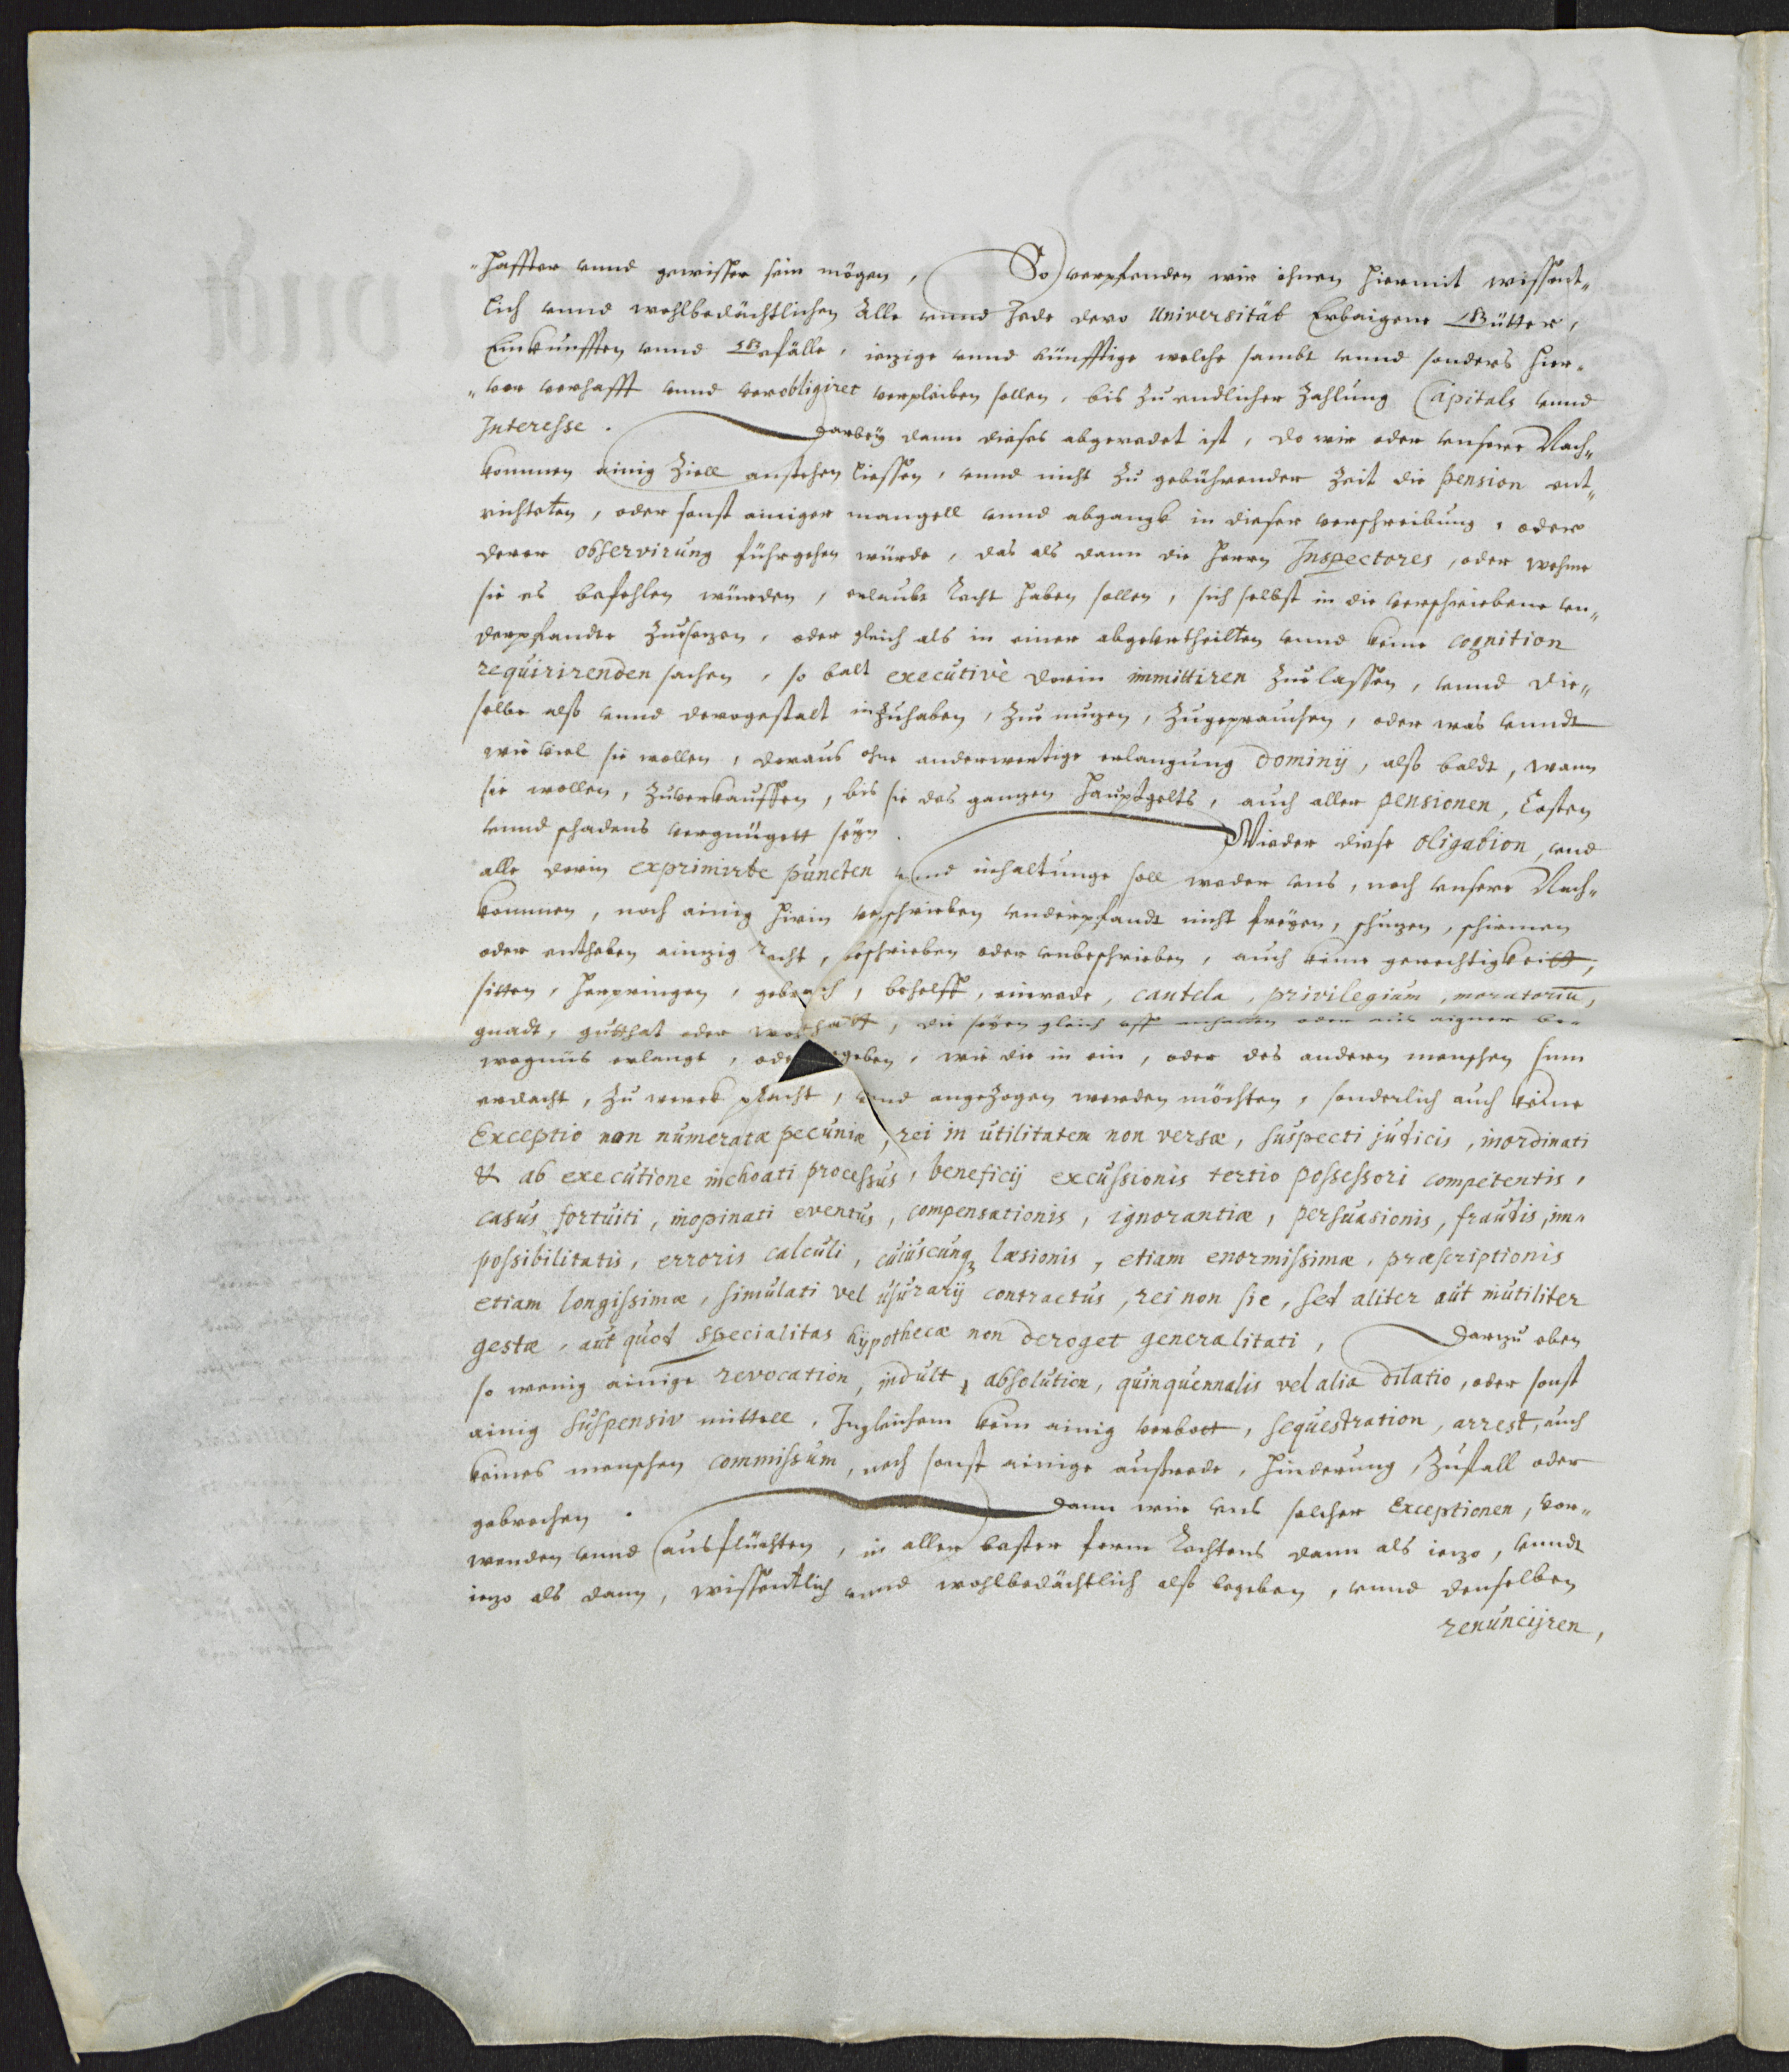 "haffter vnnd gewisser sein mögen, So verpfenden wir ihnen hiermit wissent„
lich vnnd wohlbedächtlichen Alle vnnd Jede dero Universität Erbaigene Gütter,
Einkunfften vnnd Gefälle, ietzige vnnd künfftige welche sambt vnnd sonders hier„
„vor verhafft vnnd verobligiret verpleiben sollen, bis zu endlicher Zahlung Capitals vnnd
Interesse. Darbey dann dieses abgeredet ist, do wir oder vnsere Nach„
kommen ainig Ziell anstehen liessen, vnnd nicht zu gebührender Zeit die pension ent„
richteten, oder sonst ainiger mangell vnnd abgangk in dieser verschreibung, oder
derer observirung führgehen würde, das als dann die Herrn Inspectores, oder wehme
sie es befehlen würden, erlaubt Recht haben sollen, sich selbst in die verschriebene vn„
derpfande zusetzen, oder gleich als in einer abgeurtheilten vnnd keine cognition
requirirenden sachen, so balt executivè darin immittiren zu lassen, vnnd die„
selbe also vnnd derogestalt inzuhaben, zu nutzen, zugeprauchen, oder was vnndt
wie viel sie wollen, daraus ohne anderwertige erlangung dominij, also baldt, wann
sie wollen, zuverkauffen, bis sie des gantzen Hauptgelts, auch aller pensionen, Costen
vnnd schadens vergnügett seyn. Wieder diese obligation, vnd
alle darin exprimirte puncten vnnd inhaltunge soll weder vns, noch vnsere Nach„
kommen, noch ainig hirin verschrieben vnderpfandt nicht freyen, schutzen, schirmen
oder entheben aintzig Recht, beschrieben oder vnbeschrieben, auch keine gerechtigkeitt,
sitten, herpringen, gebrauch, behelff, einrede, cautela, privilegium, moratoriū,
gnadt, gutthat oder wohlthatt, die seyen gleich vff anhalten oder aus aigner be„
wegnüs erlangt, oder gegeben, wie die in ein, oder des andern menschen sinn
erdacht, zu werck pracht, vnnd angezogen werden möchten, sonderlich auch keine
Exceptio non numeratæ pecuniæ, rei in utilitatem non versæ, suspecti judicis, inordinati
& ab executione inchoati processus, beneficij excussionis tertio possessori competentis,
casus fortuiti, inopinati eventus, compensationis, ignorantiæ, persuasionis, fraudis, im„
possibilitatis, erroris calculi, cuiuscunqꝫ læsionis, etiam enormissimæ, præscriptionis
etiam longissimæ, simulati vel usurarij contractus, rei non sic, sed aliter aut inutiliter
gestæ, aut quod specialitas hypothecæ non deroget generalitati, Dartzu eben
so wenig ainige revocation, indult, absolution, quinquennalis vel alia dilatio, oder sonst
ainig suspensiv mittell, Ingleichem kein ainig verbott, sequestration, arrest, auch
keines menschen commissum, noch sonst ainige außrede, hinderung, Zufall oder
gebrechen. Dann wir vns solcher Exceptionen, vor„
wenden vnnd ausflüchten, in aller bester form Rechtens dann als ietzo, vnndt
ietzo als dann, wissentlich vnnd wohlbedächtlich also begeben, vnnd denselben
renuncijren,